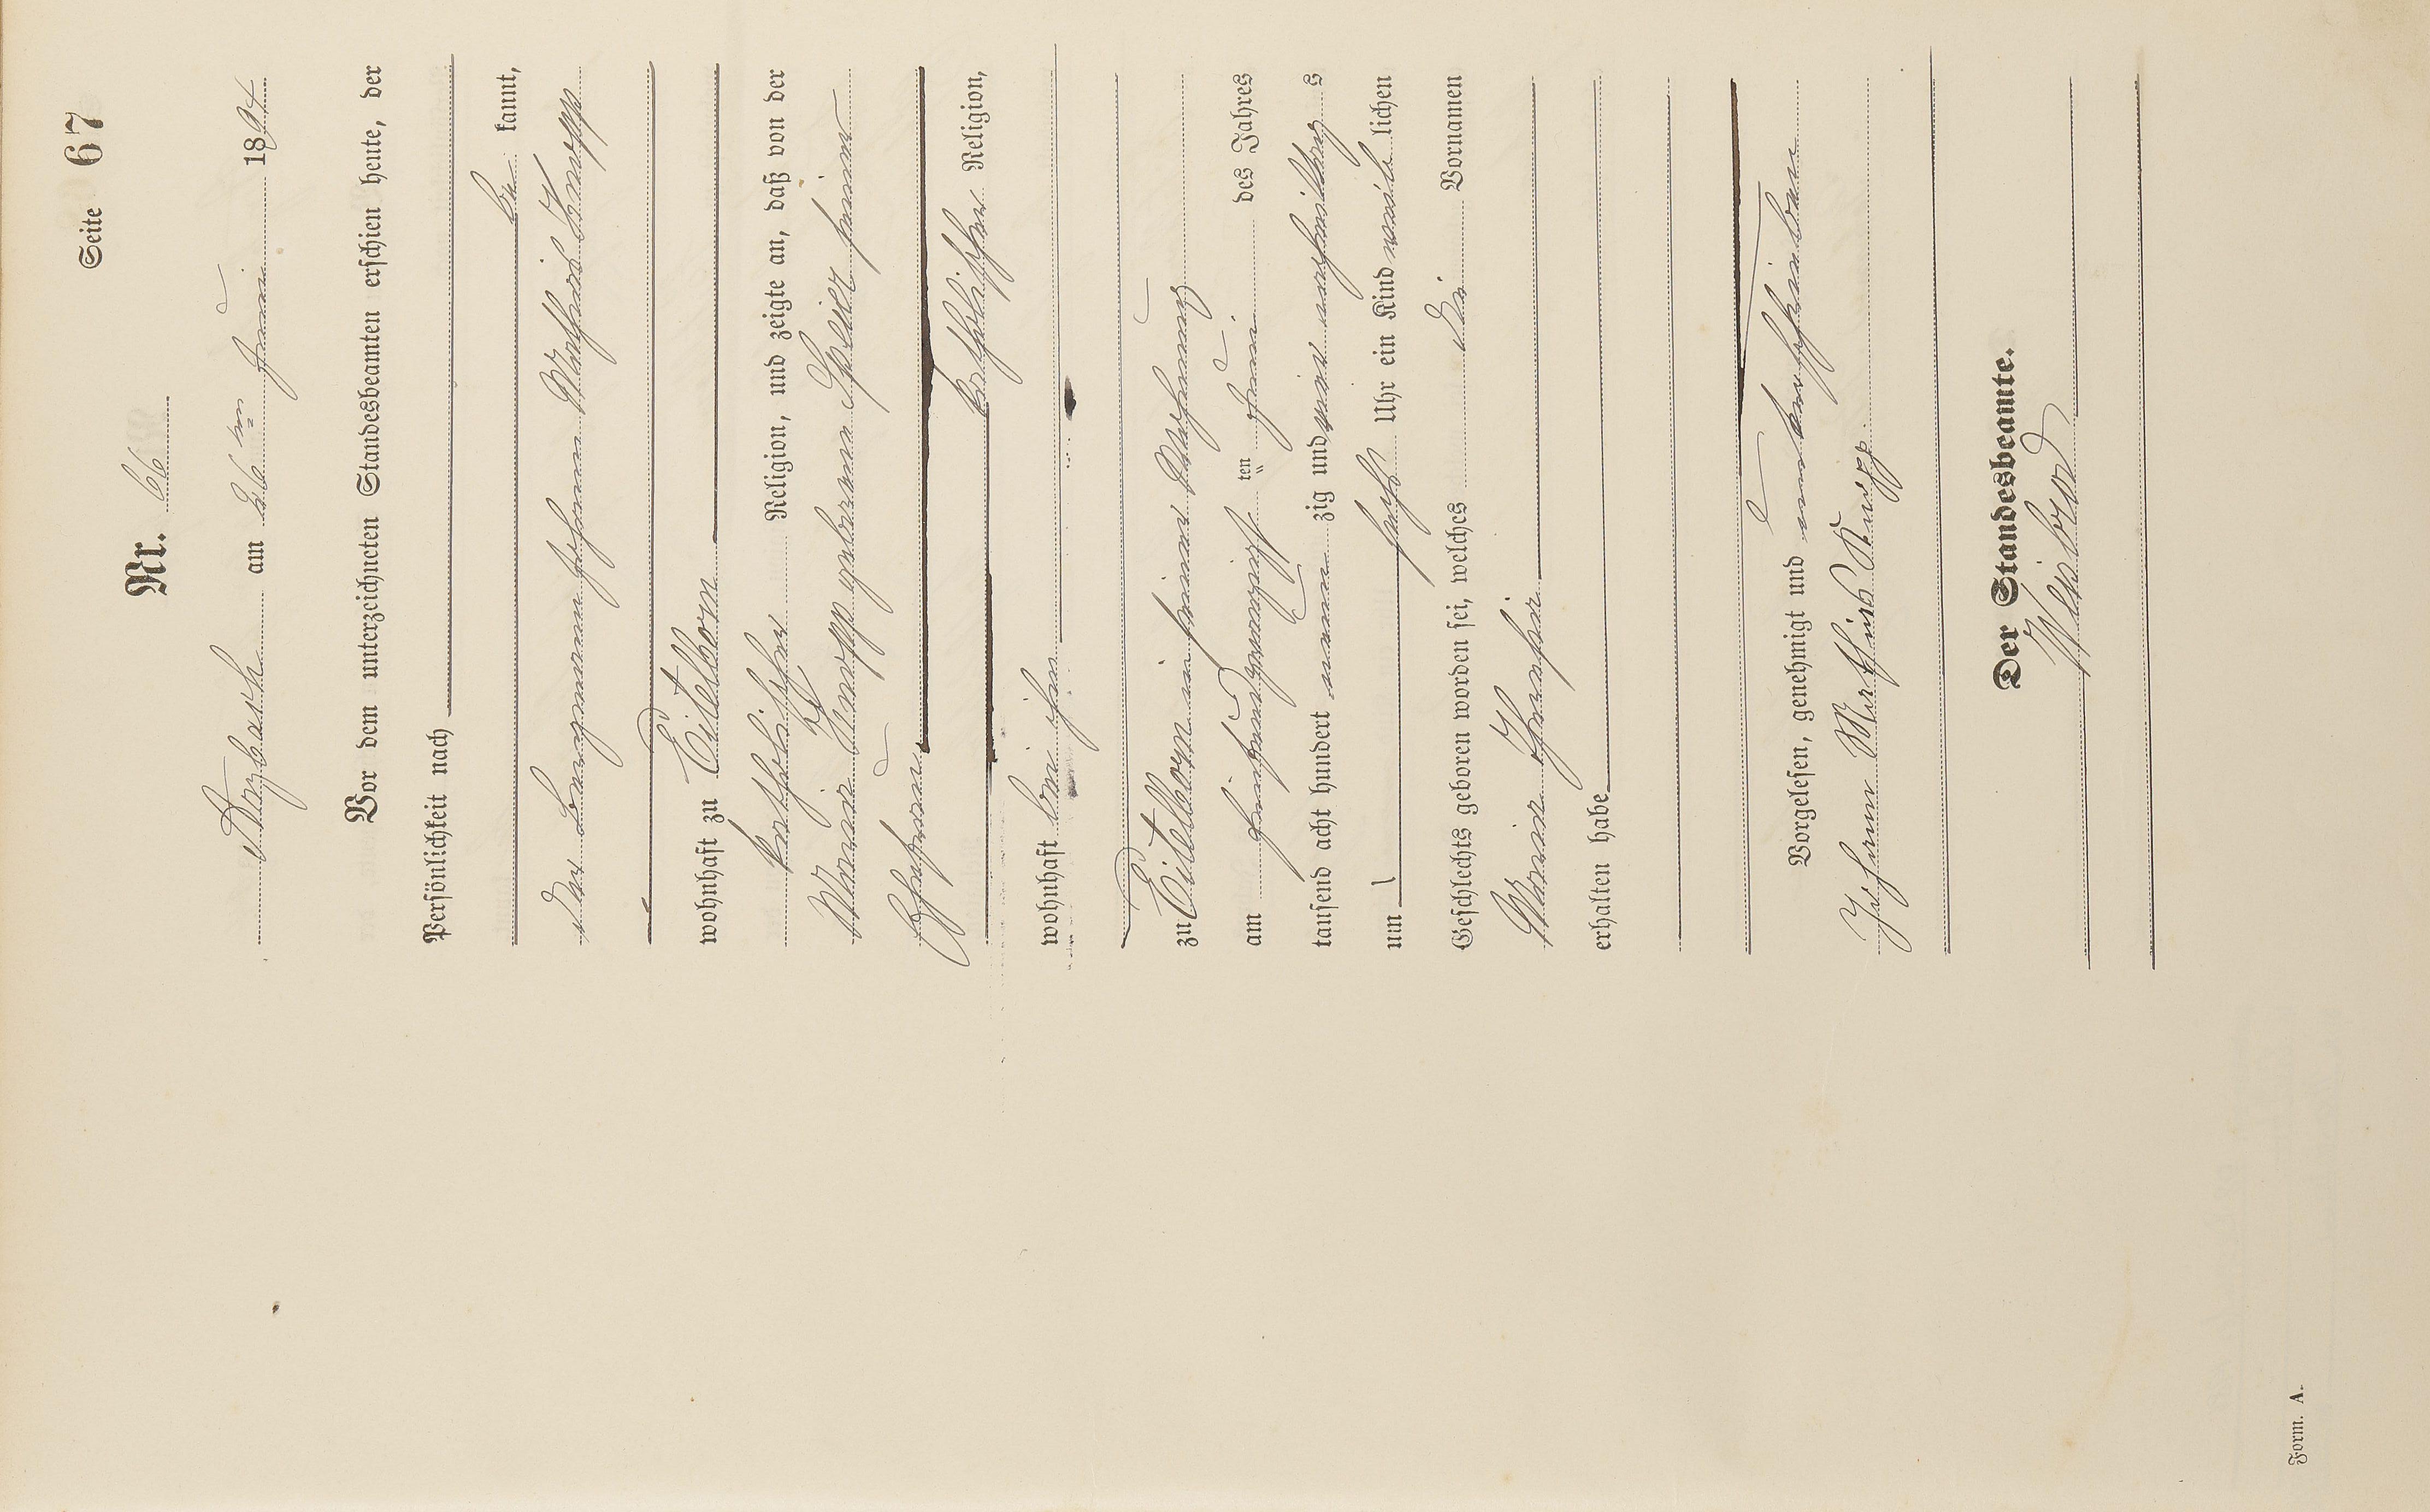 Seite 67
Nr. 66
Arzbach am 26ten Juni 1894
Vor dem unterzeichneten Standesbeamten erschien heute, der
Persönlichkeit nach
be kannt,
der Bergmann Johann Mathias Knopp
wohnhaft zu Eitelborn
katholischer Religion, und zeigte an, daß von der
Maria Knopp geborene Speier seiner
Ehefrau
katholischer Religion,
wohnhaft bei ihm
zu Eitelborn in seiner Wohnung
am fünfundzwanzigsten Juni des Jahres
tausend acht hundert neunzig und vier nachmittags
um sechs Uhr ein Kind weiblichen
Geschlechts geboren worden sei, welches die Vornamen
Maria Theresia
erhalten habe
Vorgelesen, genehmigt und unterschrieben
Johann Mathias Knopp
Der Standesbeamte.
Form. A.